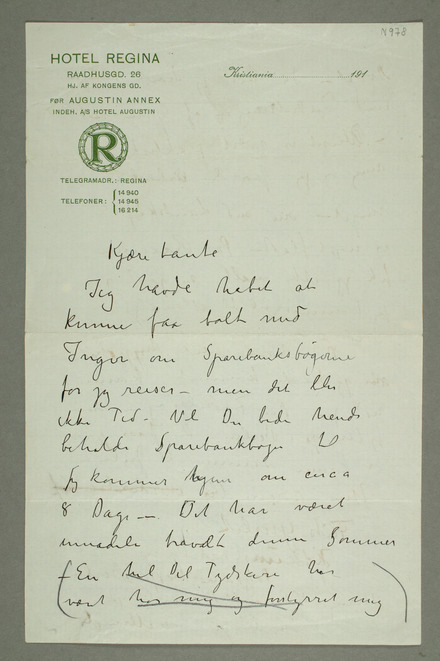 N 978
HOTEL REGINA
RAADHUSGD. 26
HJ. AF KONGENS GD.
FØR AUGUSTIN ANNEX
INDEH. A/S HOTEL AUGUSTIN
R
TELEGRAMADR.: REGINA
TELEFONER: 14 940
14 945
16 214
Kristiania 191
Kjære tante
Jeg havde habet at
kunne faa talt med
Inger om Sparebanksbøgerne
før jeg reiser – men det blev
ikke Tid – Vil Du bede hende
beholde Sparebankbogen til
jeg kommer hjem om circa
8 Dage — Det har været
travelt denne Sommer
– En hel Del Tydskere har
vært hos mig og forstyrret mig